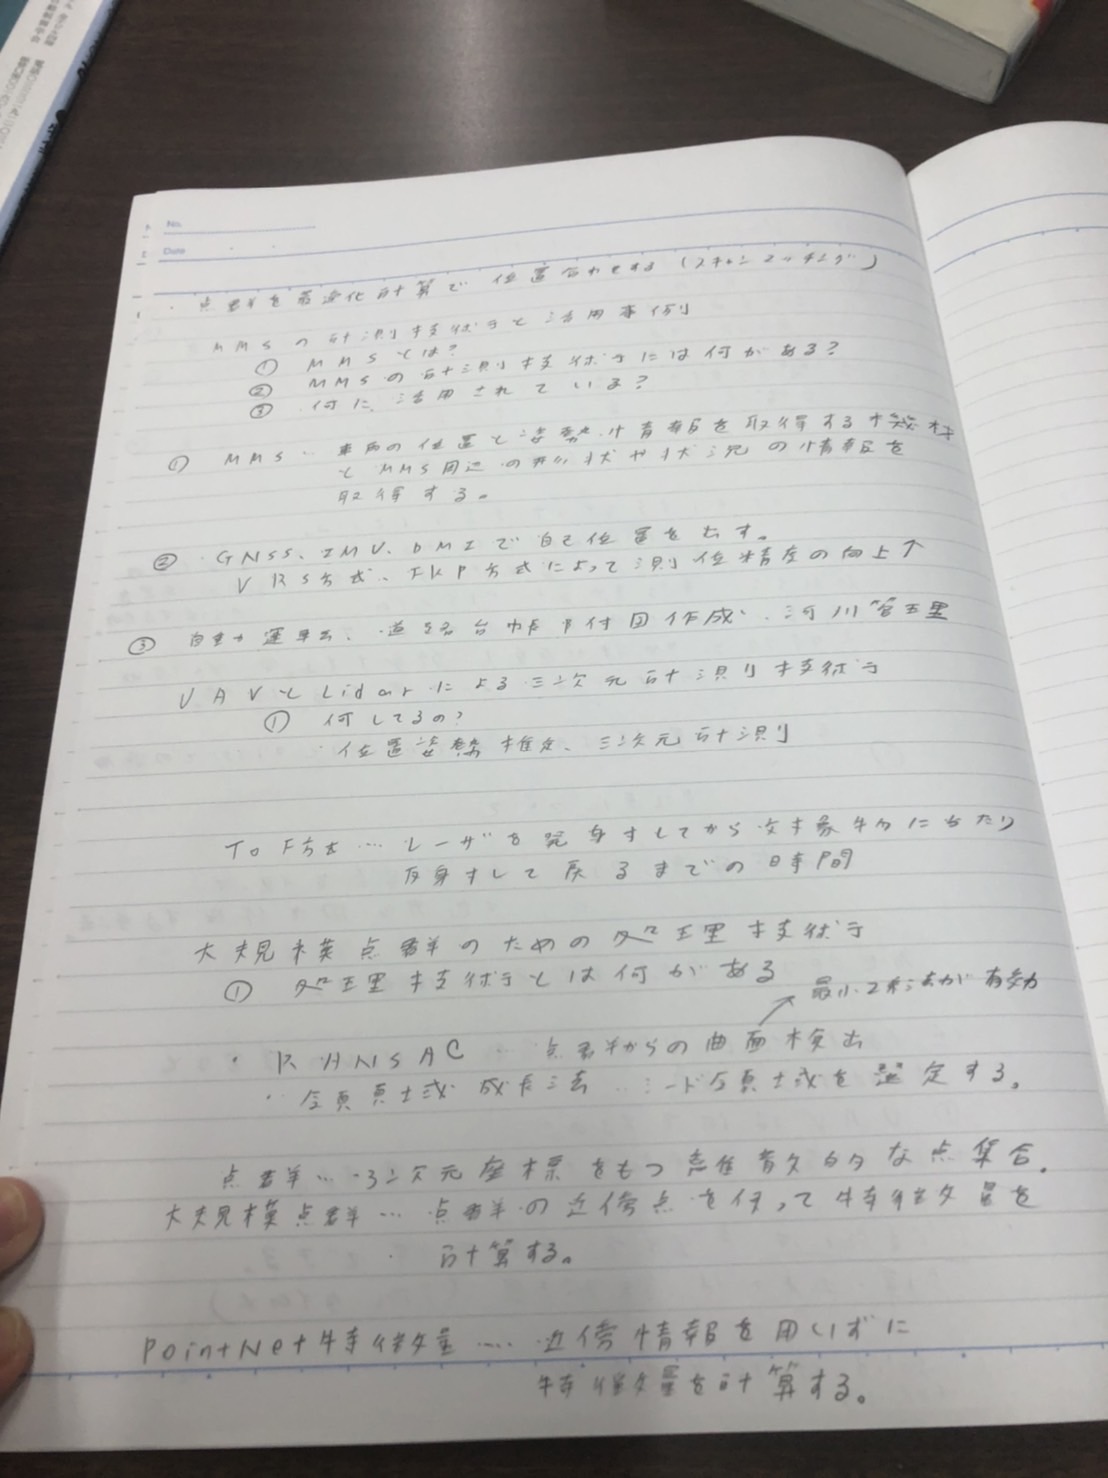 No.
Date
・点群を最適化計算で位置合わせする(スキャンマッチング)
MMSの計測技術と活用事例
① MMSとは?
② MMSの計測技術には何がある?
③ 何に活用されている?
① MMS… 車両の位置と姿勢情報を取得する機材
とMMS周辺の形状や状況の情報を
取得する。
② ・GNSS、IMU、DMIで自己位置を出す。
VRS方式、FKP方式によって測位精度の向上↑
③ 自動運転、道路台帳附図作成、河川管理
UAVとLidarによる三次元計測技術
① 何してるの?
・位置姿勢推定、三次元計測
ToF方式… レーザを発射してから対象物に当たり
反射して戻るまでの時間
大規模点群のための処理技術
① 処理技術とは何がある
最小2乗法が有効
・RANSAC … 点群からの曲面検出
・領域成長法… シード領域を選定する。
点群… 3次元座標をもつ離散的な点集合.
大規模点群… 点群の近傍点を使って特徴量を
計算する。
PointNet特徴量 …. 近傍情報を用いずに
特徴量を計算する。